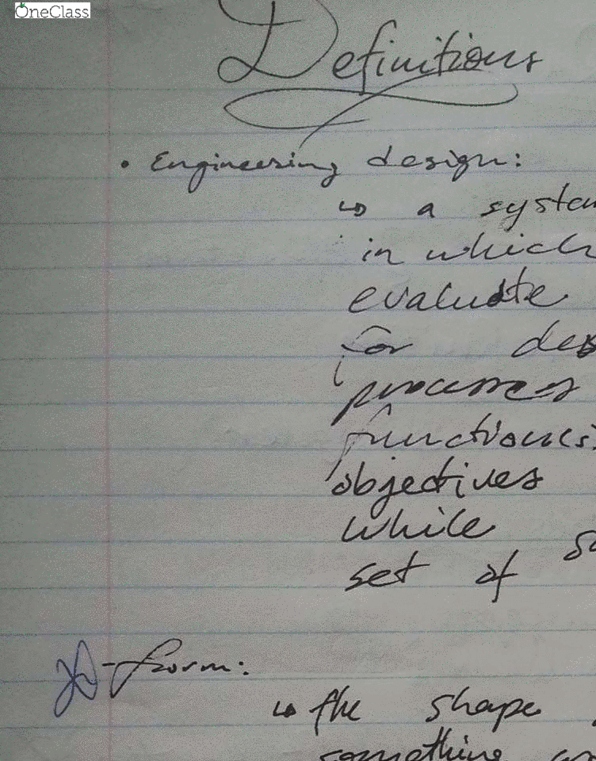 OneClass
Definitions
• Engineering design:
↳ a system
in which
evaluate
for des
processes
function(s)
objectives
while sa
set of
-form:
↳ the shape
something